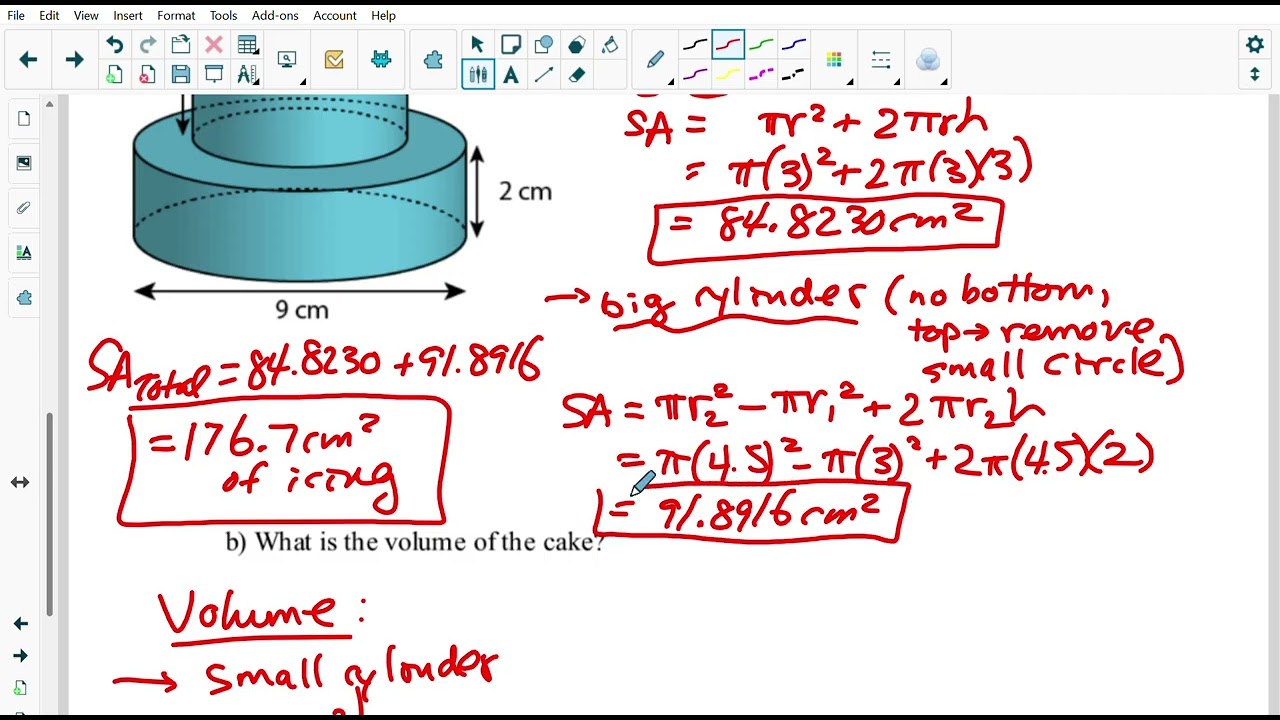 File Edit View Insert Format Tools Add-ons Account Help
SA = πr² + 2πrh
= π(3)² + 2π(3)(3)
= 84.8230 cm²
2 cm
9 cm
→ big cylinder (no bottom,
top → remove
small circle)
SA = πr₂² − πr₁² + 2πr₂h
= π(4.5)² − π(3)² + 2π(4.5)(2)
= 91.8916 cm²
SA Total = 84.8230 + 91.8916
= 176.7 cm²
of icing
b) What is the volume of the cake?
Volume:
→ small cylinder